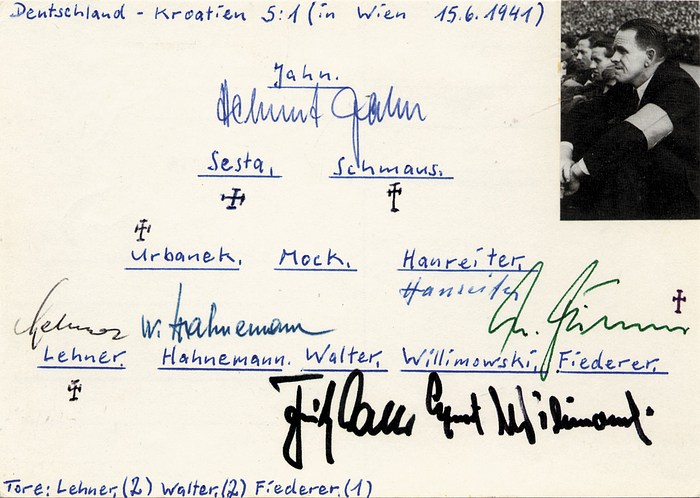 Deutschland - Kroatien 5:1 (in Wien 15.6.1941)
Jahn.
Helmut Jahn
Sesta, Schmaus.
Urbanek. Mock. Hanreiter,
Hanreiter
Lehner W. Hahnemann
Lehner. Hahnemann. Walter, Willimowski, Fiederer.
Fritz Walter Ernst Willimowski
Tore: Lehner,(2) Walter,(2) Fiederer.(1)